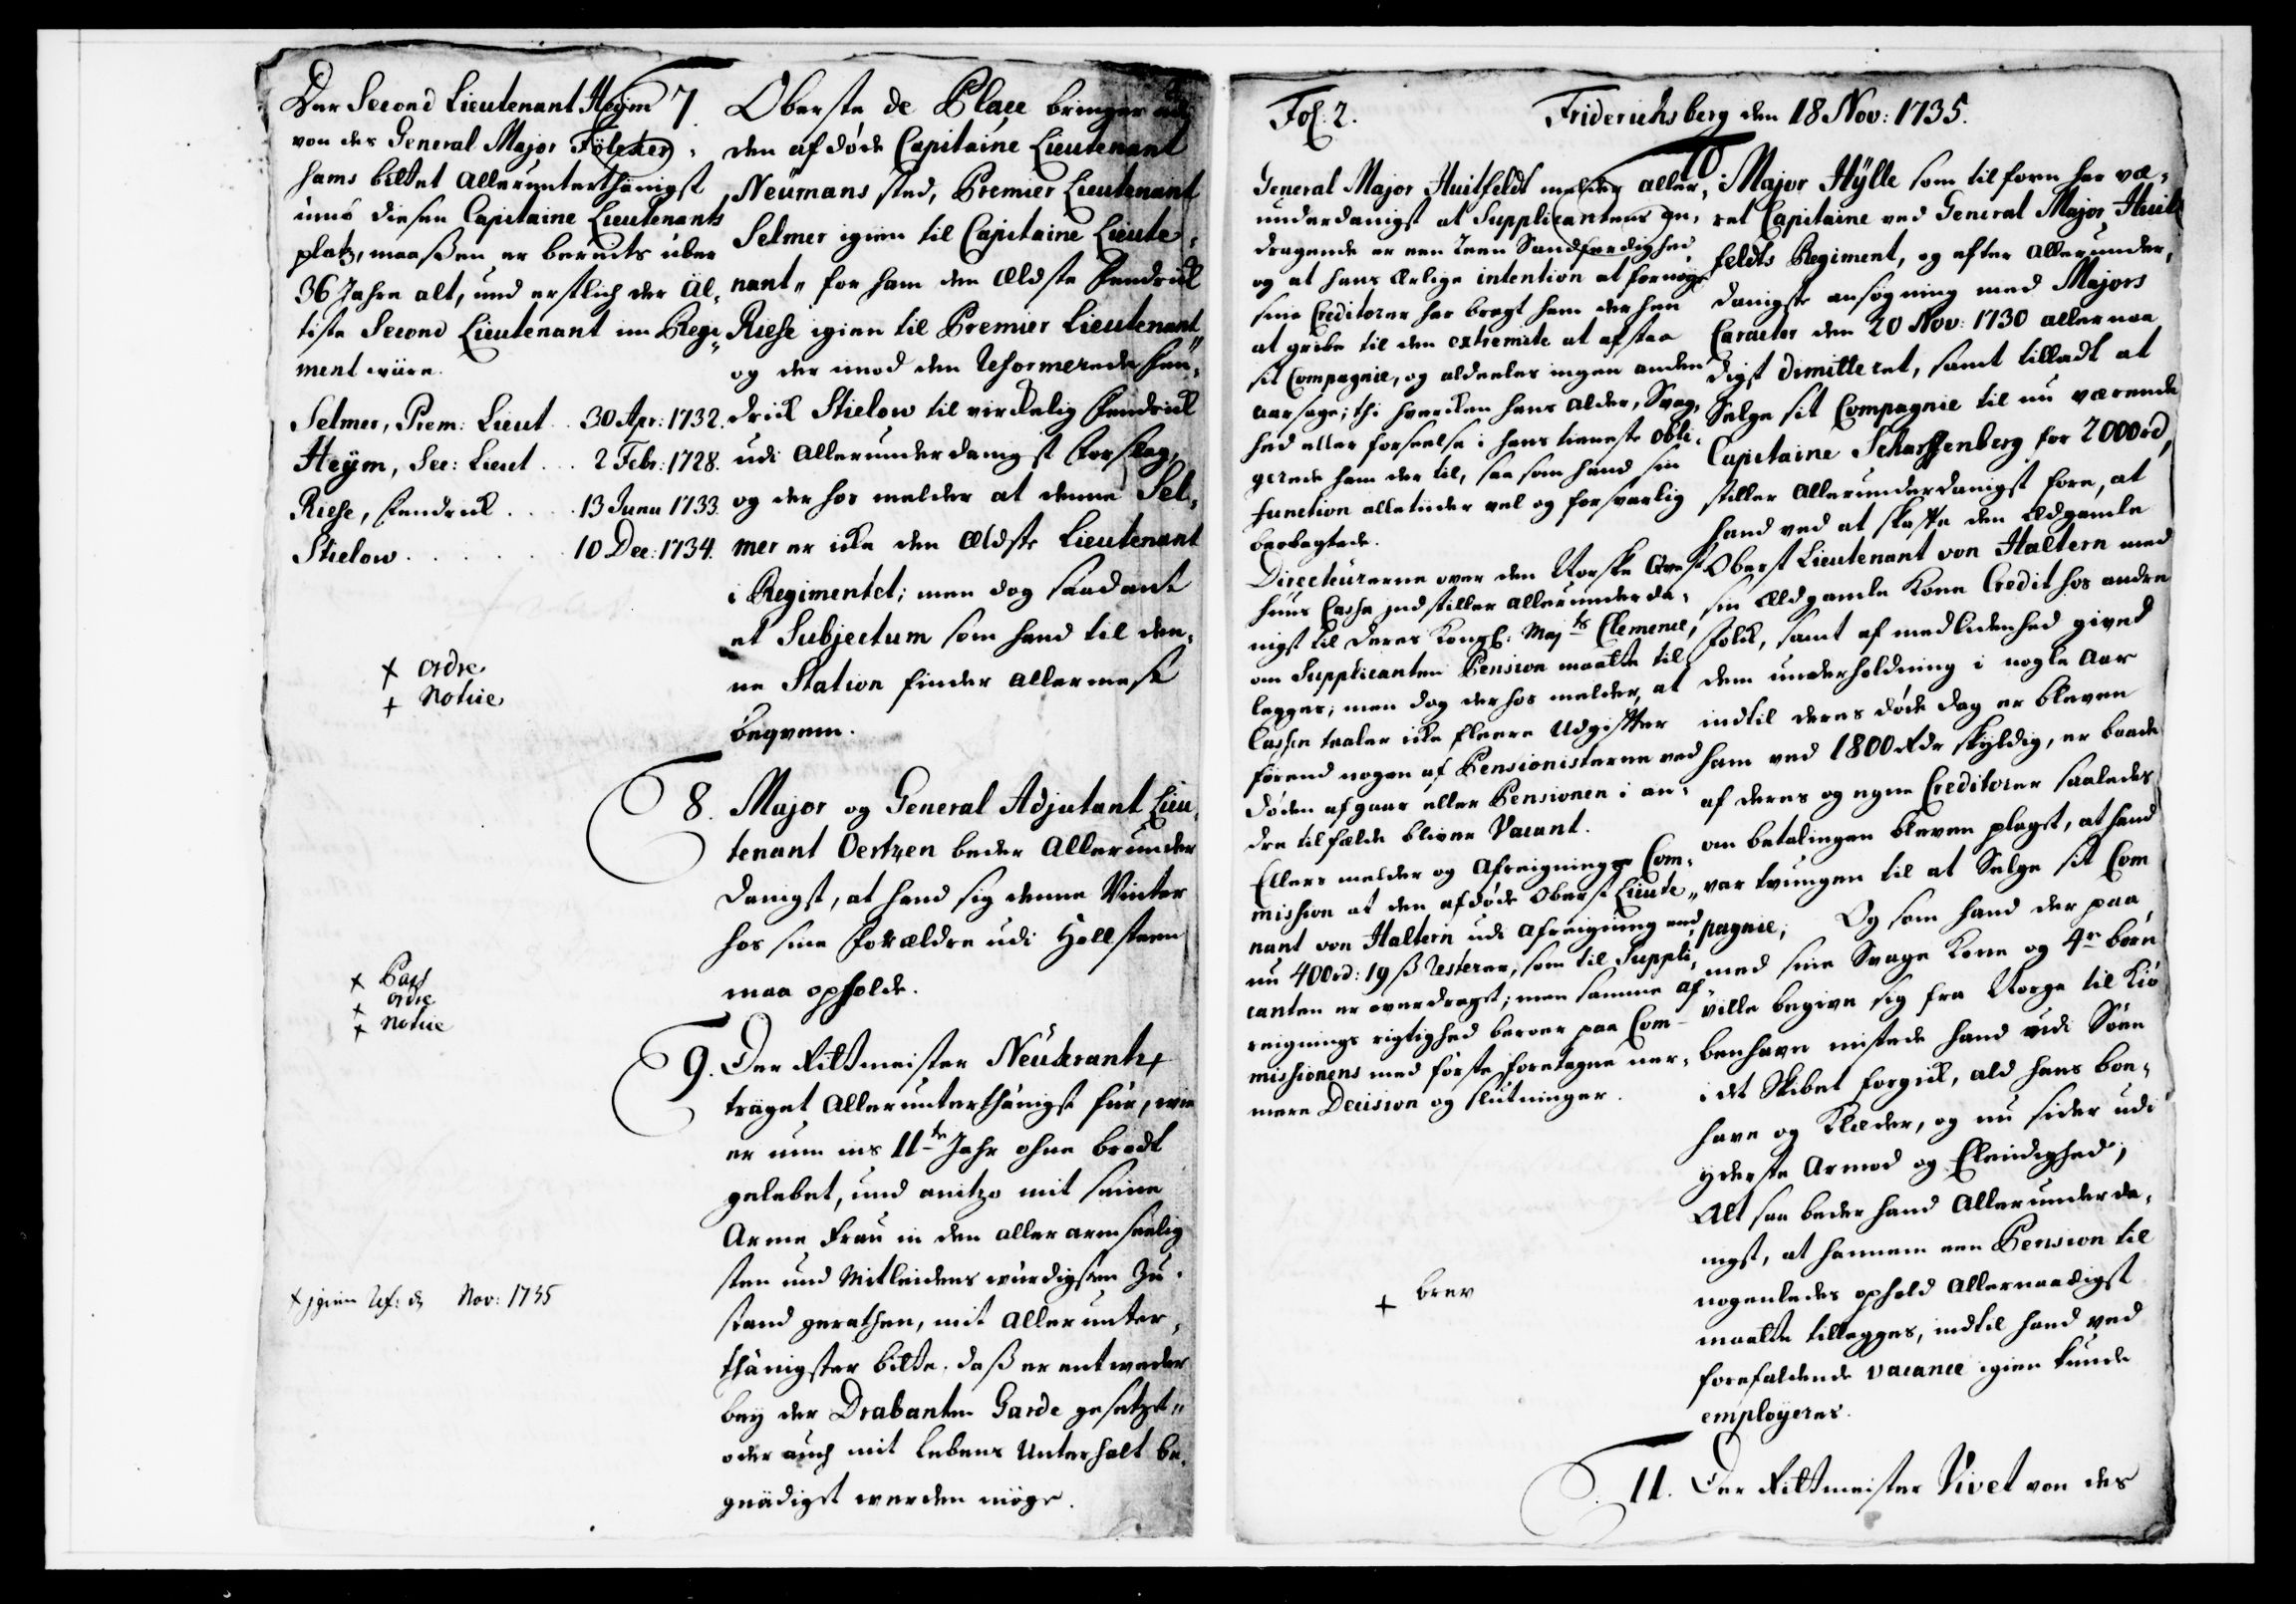 Der Second Lieutenant Heÿm
von des General Major Fölcker,
sams bittet Allerunterthänigst
umb diesen Capitaine Lieutenants
platz, maaßen er bereits über
36 Jahre alt, und erstlich der äl,
tiste Second Lieutenant im Regi„
ment wäre.
Selmer, Prem: Lieut. 30 Apr: 1732.
Heÿm, Sec: Lieut... 2 Febr: 1728.
Riese, Fendrick.... 13 Junii 1733.
Stielow....... 10 Dec: 1734.
+ ordre
+ notice
+ Pass
+ ordre
+ notice
+ igien Ref: d Nov: 1735
7. Oberste de Place bringer udj
den afdøde Capitaine Lieutenant
Neümans sted, Premier Lieutenant
Selmer igien til Capitaine Lieute,
nant„ for ham den Ældste Fendrick
Riese igien til Premier Lieutenant„
og der imod den Reformerede Fen,
drick Stielow til virckelig Fendrick
udi Allerunderdanigst Forslag,
og der hos melder at denne Sel,
mer er icke den Ældste Lieutenant
i Regimentet; men dog saadant
et Subjectum som hand til den,
ne Station finder allermest
beqvem.
8. Major og General Adjutant Lieu,
tenant Oertzen beder Allerunder
danigst, at hand sig denne Vinter
hos sine Forældre udi Hollsteen
maa opholde.
9. Der Rittmeister Neükrantz
träget Allerunterthänigst für, wie
er nun ins 11te Jahr ohne brodt
gelebet, und anitzo mit seine
Arme Frau in den aller armseelig
sten und Mitleidens würdigsten Zu,
stand gerathen, mit Allerunter,
thänigster bitte, daß er entweder
beÿ der Drabanten Garde gesetzet„
oder auch mit lebens Unterhalt be,
gnädiget werden möge.
Fol. 2.
Friderichsberg den 18 Nov: 1735.
General Major Huitfeldt melder aller,
underdanigst at Supplicantens an,
dragende er een reen Sandfærdighed
og at hans ærlige intention at fornøÿe
sine Creditorer har bragt ham der hen
at gribe til den extremite at afstaa
sit Compagnie, og aldeeles ingen anden
aarsage; thi hvercken hans Alder, Svag,
hed eller forseelse i hans tieneste obli,
gerede ham der til, saa som hand sin
function alletiider vel og forsvarlig
beobagtede.
Directeürerne over den Norske Qvæst
huus Cassa indstiller allerunderda,
nigst til Deres Kongl: Majts Clemence,
om Supplicanten Pension maatte til
legges; men dog der hos melder, at
Cassen taaler icke fleere Udgiffter
førend nogen af Pensionisterne ved
døden afgaar eller Pensionen i an,
dre tilfælde bliver Vacant.
Ellers melder og Afreignings Com,
mission at den afdøde Oberst Lieute„
nant von Haltern udi Afreigning end
nu 400 rd: 19 ß resterer, som til Suppli,
canten er overdraget; men samme Af„
reignings rigtighed beroer paa Com„
missionens med første foretagne ner,
mere Decision og slutninger.
+ brev
Major Hÿlle som tilforn har væ,
ret Capitaine ved General Major Huit
feldts Regiment, og efter Allerunder,
danigste ansøgning med Majors
Caracter den 20 Nov: 1730 allernaa
digst dimitteret, samt tilladt at
Selge sit Compagnie til nu værende
Capitaine Scharffenberg for 2000 rd,
stiller Allerunderdanigst fore, at
hand ved at skaffe den Ældgamle
Oberst Lieutenant von Haltern med
sin Ældgamle Kone Credit hos andre
folck, samt af medlidenhed gived
dem underholdning i nogle Aar
indtil deres døde dag er bleven
ham ved 1800 Rdr skÿldig, er baade
af deres og egne Creditorer saaledes
om betalingen bleven plaget, at hand
var tvungen til at Selge sit Com
pagnie; Og som hand der paa
med sine Svage Kone og 4re børn
ville begive sig fra Norge til Kiø
benhavn mistede hand udi Søen
i det Skibet forgick, ald hans boe,
have og Klæder, og nu sider udi
ÿderste Armod og Elendighed;
Alt saa beder hand Allerunderda,
nigst, at hannem een Pension til
nogenledes ophold Allernaadigst
maatte tillegges, indtil hand ved
forefaldende vacance igien kunde
emploÿeres.
11. Der Rittmeister Vivet von des